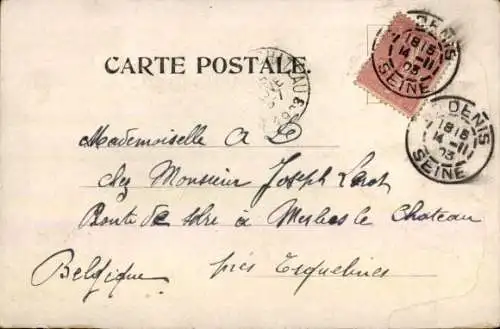 DENIS
1815
14-11
05
SEINE
CARTE POSTALE.
DENIS
1815
14-11
05
SEINE
Mademoiselle A L
chez Monsieur Joseph
Route de à Merbes le Chateau
Belgique près Erquelines